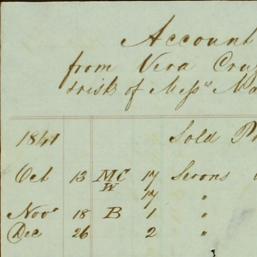 Account
from Vera Cruz
& risk of Messrs Ma
1841 Sold P
Oct 13 MC 17 Seroons
W 17 "
Novr 18 B 1 "
Dec 26 2 "